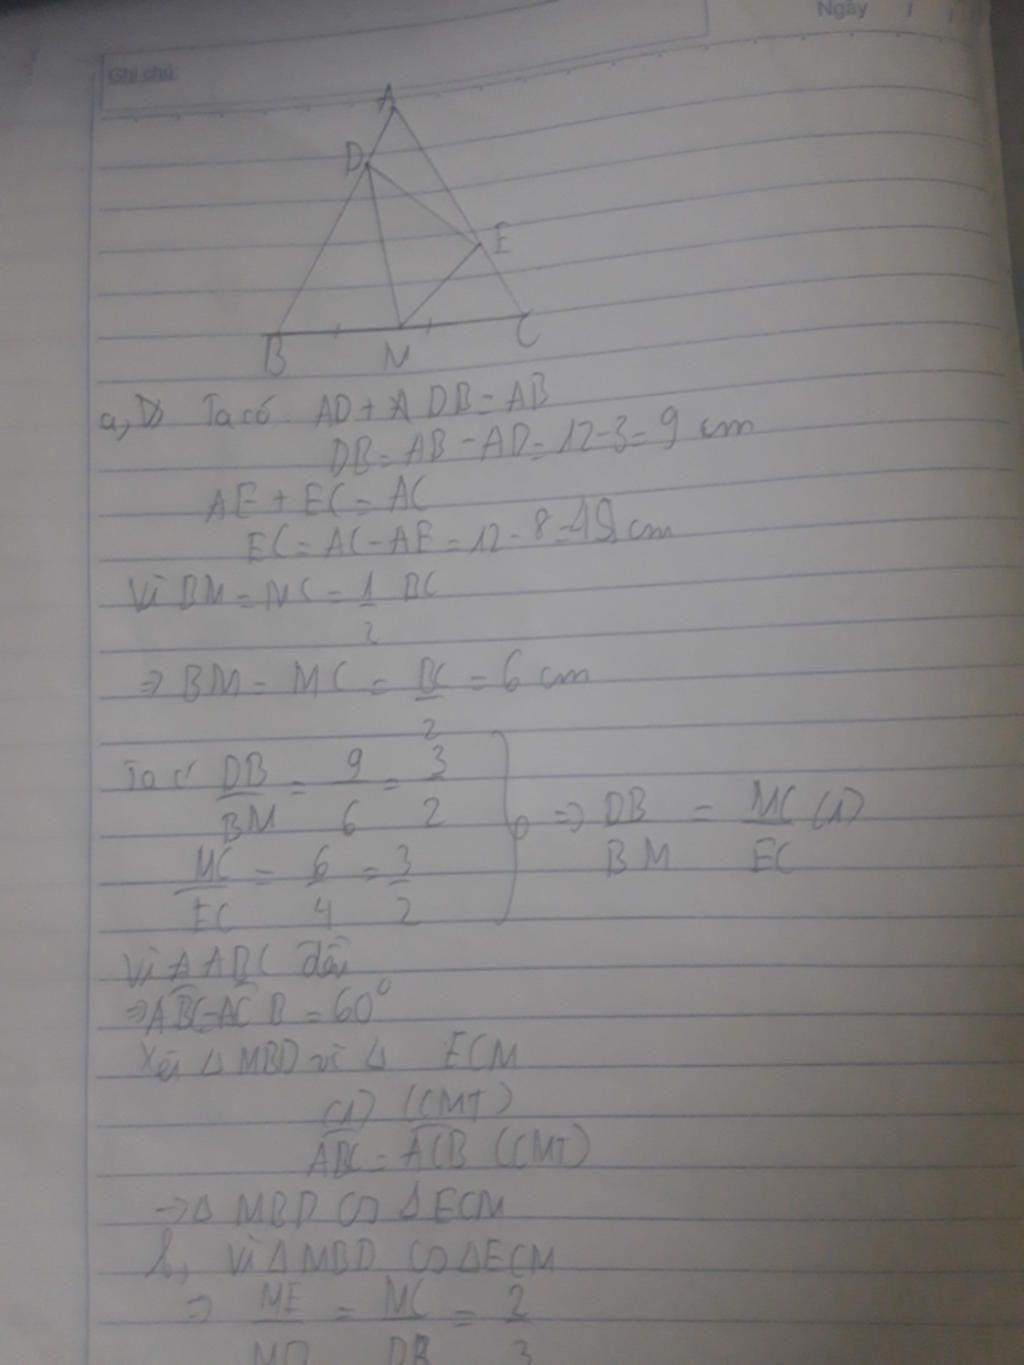 Ngày / /
Ghi chú:
A
D
E
B M C
a, Ta có AD + DB = AB
DB = AB - AD = 12 - 3 = 9 cm
AE + EC = AC
EC = AC - AE = 12 - 8 = 4 cm
Vì BM = MC = 1/2 BC
=> BM = MC = BC/2 = 6 cm
Ta có DB/BM = 9/6 = 3/2
MC/EC = 6/4 = 3/2
=> DB/BM = MC/EC (1)
Vì Δ ABC đều
=> ABC = ACB = 60°
Xét Δ MBD và Δ ECM
(1) (CMT)
ABC = ACB (CMT)
=> Δ MBD ∽ Δ ECM
b, Vì Δ MBD ∽ Δ ECM
=> ME/MD = MC/DB = 2/3